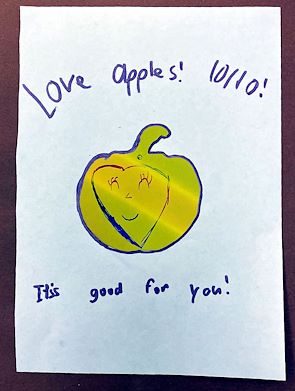 Love apples! 10/10!
It's good for you!